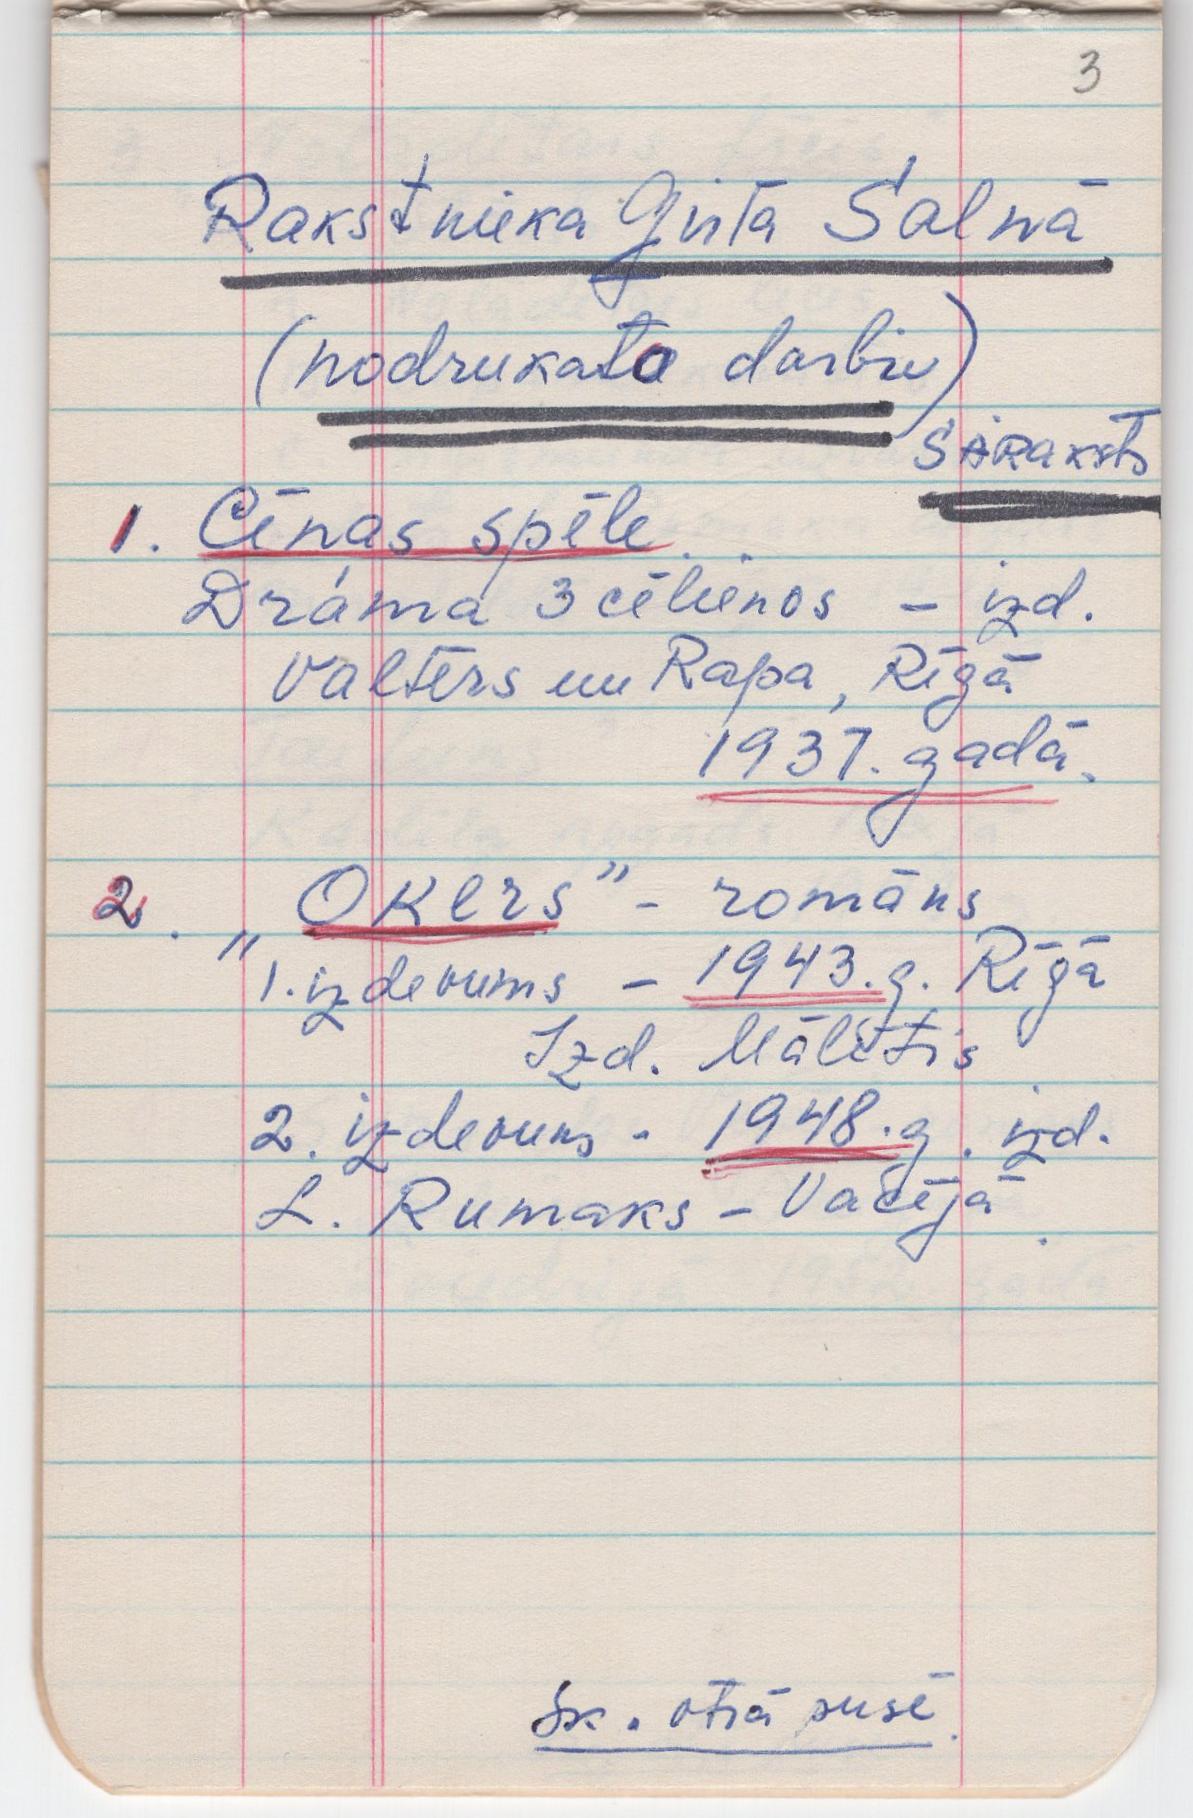 3
Rakstnieka Ginta Salnā
(nodrukato darbu)
SARaksts
1. Cēnas spēle.
Drāma 3 cēlienos – izd.
Valters un Rapa, Rīgā
1937. gadā.
2. „OKERS” - romāns
1. izdevums – 1943. g. Rīgā
Izd. Mālītis
2. izdevums - 1948. g. izd.
L. Rumaks – Vācijā.
Sk. otrā pusē.